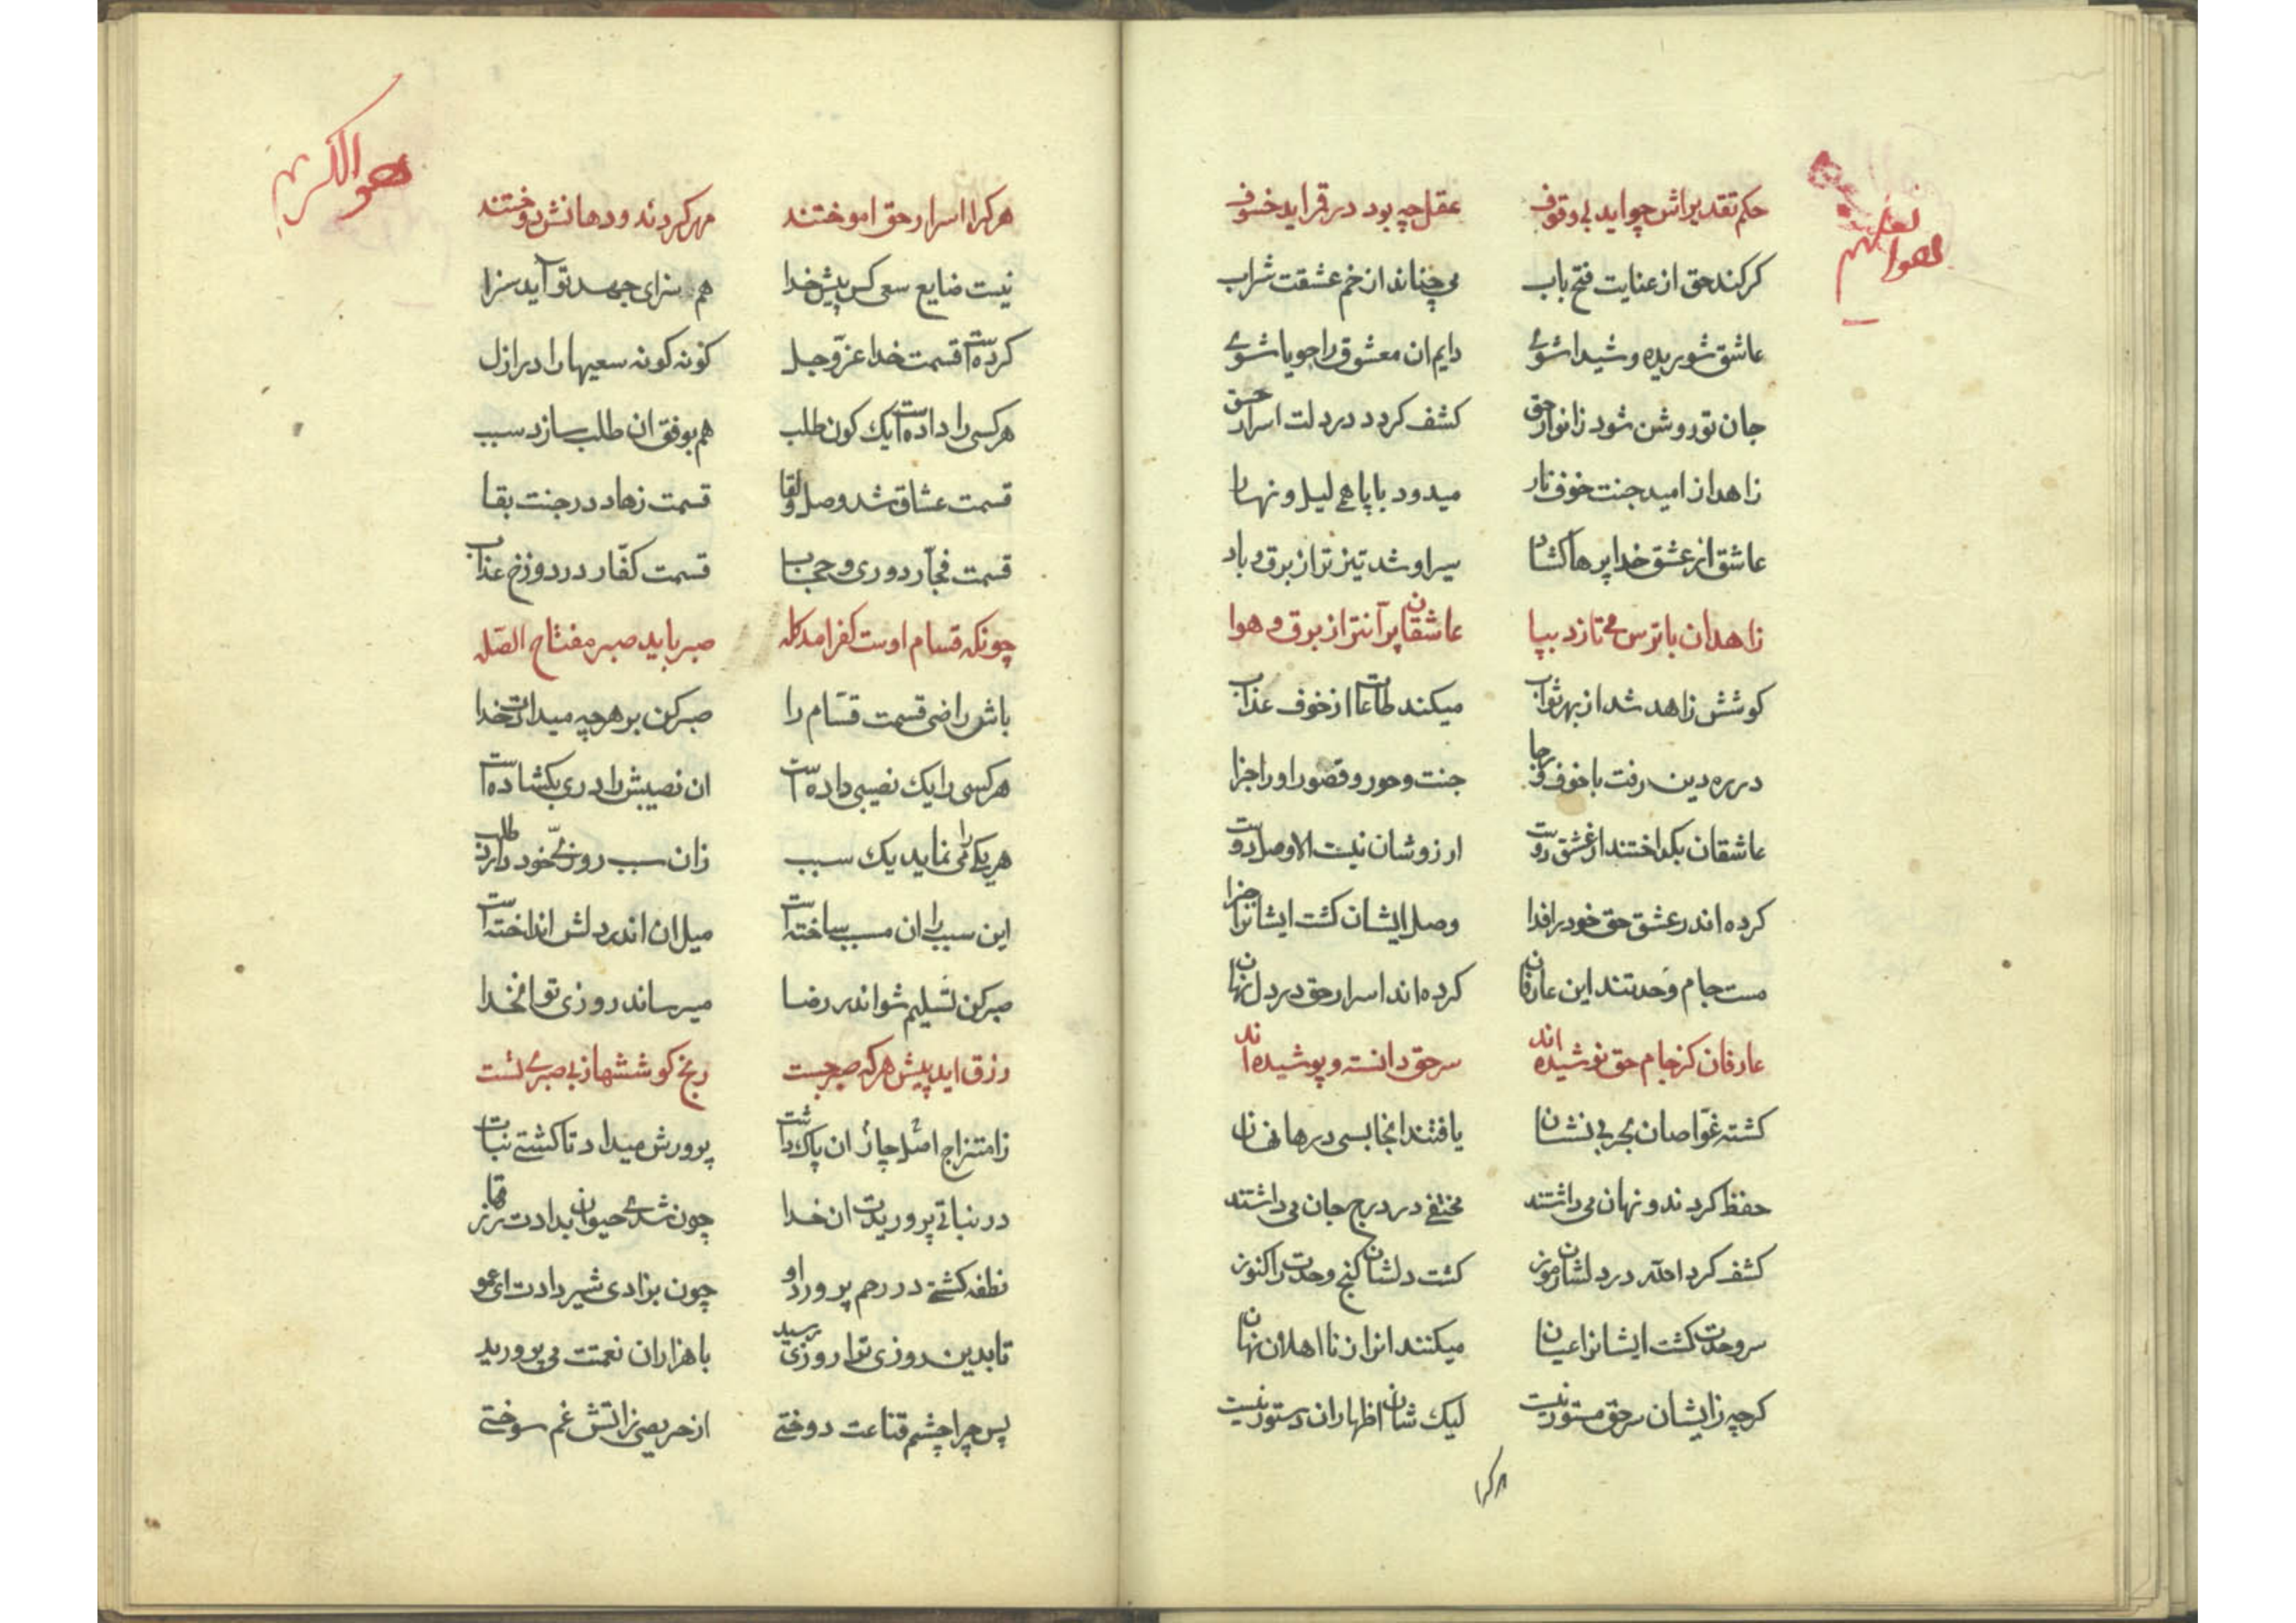 حکم تقدیراش چو اید بی وقوف عقل چه بود در قمر اید خسوف
کر کند حق از عنایت فتح باب می چشاند از خم عشقت شراب
عاشق شوریده و شیدا شوی دایم ان معشوق را جویا شوی
جان تو روشن شود ز انوار حق کشف کردد در دلت اسرار حق
زاهد از امید جنت خوف نار میدود با پا همی لیل و نهار
عاشق از عشق خدا پرها کشاد سیر او شد تیز تر از برق و باد
زاهد ان با ترس می تازد بپا عاشقان پرآنتر از برق و هوا
کوشش زاهد شد از بهر ثواب میکند طاعات از خوف عذاب
در ره دین رفت با خوف و رجا جنت و حور و قصور او را جزا
عاشقان بکداختند از عشق دوست ارزوشان نیست الا وصل دوست
کرده اند در عشق حق خود را فدا وصل ایشان کشت ایشانرا جزا
مست جام وحدتند این عارفان کرده اند اسرار حق در دل نهان
عارفان کز جام حق نوشیده اند سر حق دانسته و پوشیده اند
کشته غوّاصان بحر بی نشان یافتند انجا بسی درها نهان
حفظ کردند و نهان می داشتند مختفی در درج جان می داشتند
کشف کرد الله در دلشان رموز کشت دلشان کنج وحدت را کنوز
سر وحدت کشت ایشانرا عیان میکنند انرا ز نا اهلان نهان
کرچه ز ایشان سر حق مستور نیست لیک شان اظهار ان دستور نیست
هر کرا
هو الکریم
هر کرا اسرار حق اموختند مهر کردند و دهانش دوختند
نیست ضایع سعی کس پیش خدا هم سزای جهد تو آید سزا
کرده است قسمت خدا عزّ و جل کونه کونه سعیها را در ازل
هر کسی را داده است یک کون طلب هم بوفق ان طلب سازد سبب
قسمت عشاق شد وصل و لقا قسمت زهاد در جنت بقا
قسمت فجّار دوری و حجاب قسمت کفّار در دوزخ عذاب
چونکه قسام اوست کفر امد کله صبر باید صبر مفتاح الصله
باش راضی قسمت قسّام را صبر کن بر هرچه میدادت خدا
هر کسی را یک نصیبی داده است ان نصیبش را دری بکشاده است
هر یکی را می نماید یک سبب زان سبب روزیّ خود دارد طلب
این سبب را ان مسبب ساخته است میل ان اندر دلش انداخته است
صبر کن تسلیم شو اندر رضا میرساند روزی تو انخدا
رزق اید پیش هر که صبر جست رنج کوششها ز بی صبری تست
ز امتزاج اصل چار ان پاک پرورش میداد تا کشتی نبات
در نباتی پروریدت ان خدا چون شدی حیوان بدادت
نطفه کشتی در رحم پرورد او چون بزادی شیر دادت ای عمو
تا بدین روزی ترا روزی رسید با هزاران نعمتت می پرورید
پس چرا چشم قناعت دوختی از حریصی ز اتش غم سوختی